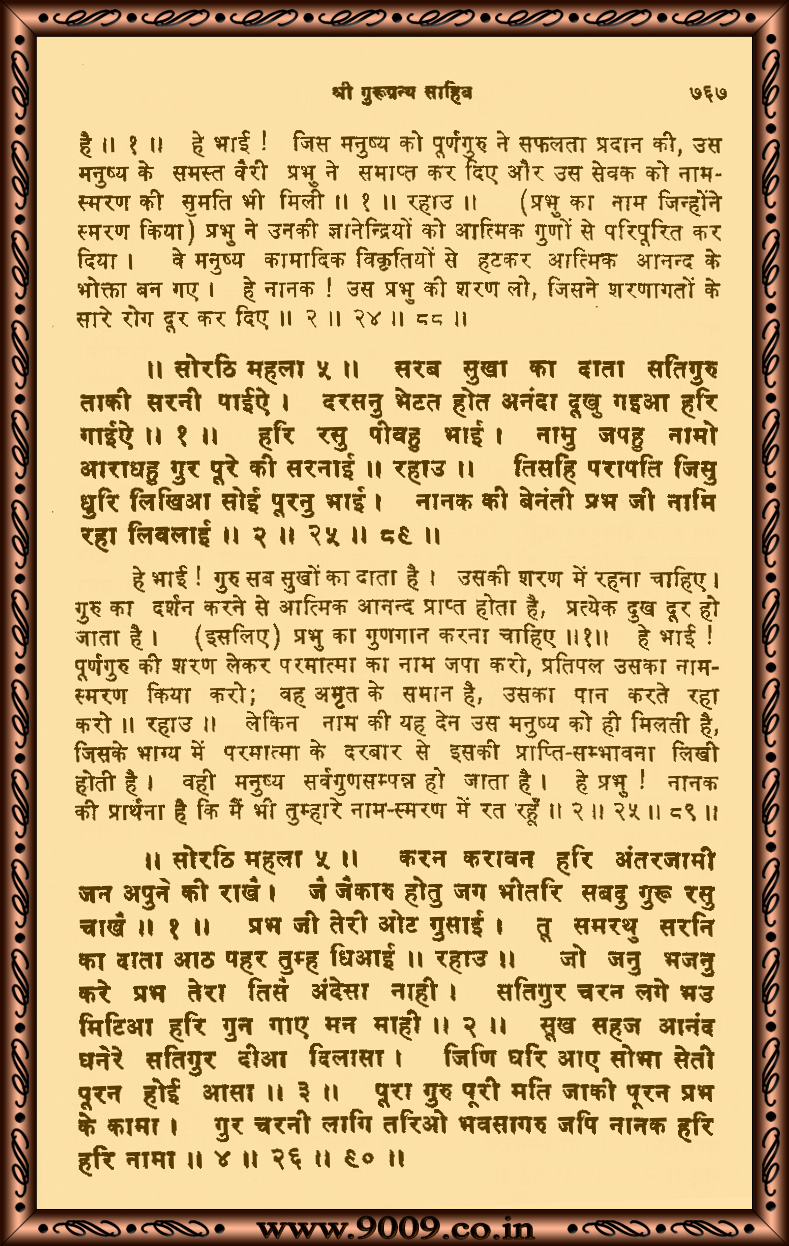 श्री गुरूग्रन्थ साहिब ७६७
है ॥ १ ॥ हे भाई ! जिस मनुष्य को पूर्णगुरु ने सफलता प्रदान की, उस
मनुष्य के समस्त वैरी प्रभु ने समाप्त कर दिए और उस सेवक को नाम-
स्मरण की सुमति भी मिली ॥ १ ॥ रहाउ ॥ (प्रभु का नाम जिन्होंने
स्मरण किया) प्रभु ने उनकी ज्ञानेन्द्रियों को आत्मिक गुणों से परिपूरित कर
दिया । वे मनुष्य कामादिक विकृतियों से हटकर आत्मिक आनन्द के
भोक्ता बन गए । हे नानक ! उस प्रभु की शरण लो, जिसने शरणागतों के
सारे रोग दूर कर दिए ॥ २ ॥ २४ ॥ ८८ ॥
॥ सोरठि महला ५ ॥ सरब सुखा का दाता सतिगुरु
ताकी सरनी पाईऐ । दरसनु भेटत होत अनंदा दूखु गइआ हरि
गाईऐ ॥ १ ॥ हरि रसु पीवहु भाई । नामु जपहु नामो
आराधहु गुर पूरे की सरनाई ॥ रहाउ ॥ तिसहि परापति जिसु
धुरि लिखिआ सोई पूरनु भाई । नानक की बेनंती प्रभ जी नामि
रहा लिवलाई ॥ २ ॥ २५ ॥ ८९ ॥
हे भाई ! गुरु सब सुखों का दाता है । उसकी शरण में रहना चाहिए ।
गुरु का दर्शन करने से आत्मिक आनन्द प्राप्त होता है, प्रत्येक दुख दूर हो
जाता है । (इसलिए) प्रभु का गुणगान करना चाहिए ॥१॥ हे भाई !
पूर्णगुरु की शरण लेकर परमात्मा का नाम जपा करो, प्रतिपल उसका नाम-
स्मरण किया करो; वह अमृत के समान है, उसका पान करते रहा
करो ॥ रहाउ ॥ लेकिन नाम की यह देन उस मनुष्य को ही मिलती है,
जिसके भाग्य में परमात्मा के दरबार से इसकी प्राप्ति-सम्भावना लिखी
होती है । वही मनुष्य सर्वगुणसम्पन्न हो जाता है । हे प्रभु ! नानक
की प्रार्थना है कि मैं भी तुम्हारे नाम-स्मरण में रत रहूँ ॥ २ ॥ २५ ॥ ८९ ॥
॥ सोरठि महला ५ ॥ करन करावन हरि अंतरजामी
जन अपुने की राखै । जै जैकारु होतु जग भीतरि सबदु गुरू रसु
चाखै ॥ १ ॥ प्रभ जी तेरी ओट गुसाई । तू समरथु सरनि
का दाता आठ पहर तुम्ह धिआई ॥ रहाउ ॥ जो जनु भजनु
करे प्रभ तेरा तिसै अंदेसा नाही । सतिगुर चरन लगे भउ
मिटिआ हरि गुन गाए मन माही ॥ २ ॥ सूख सहज आनंद
घनेरे सतिगुर दीआ दिलासा । जिणि घरि आए सोभा सेती
पूरन होई आसा ॥ ३ ॥ पूरा गुरु पूरी मति जाकी पूरन प्रभ
के कामा । गुर चरनी लागि तरिओ भवसागरु जपि नानक हरि
हरि नामा ॥ ४ ॥ २६ ॥ ९० ॥
www.9009.co.in